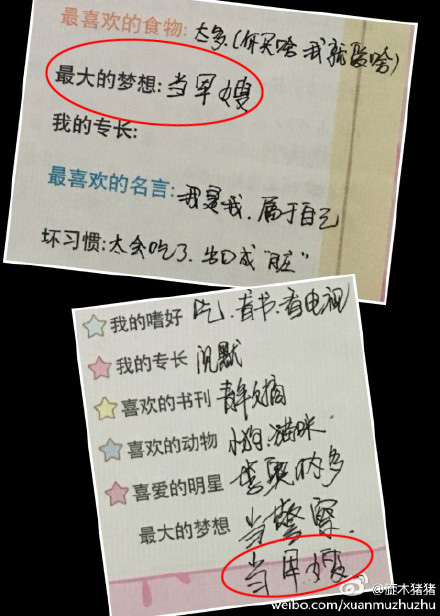 最喜欢的食物: 太多.(你买啥我就爱啥)
最大的梦想: 当军嫂
我的专长:
最喜欢的名言: 我是我.属于自己
坏习惯: 太会吃了.出口成"脏"
我的嗜好 吃.看书.看电视
我的专长 沉默
喜欢的书刊 青年文摘
喜欢的动物 小狗.猫咪.
喜爱的明星 喜欢的多
最大的梦想 当警察.
当军嫂
@旋木猪猪
weibo.com/xuanmuzhuzhu